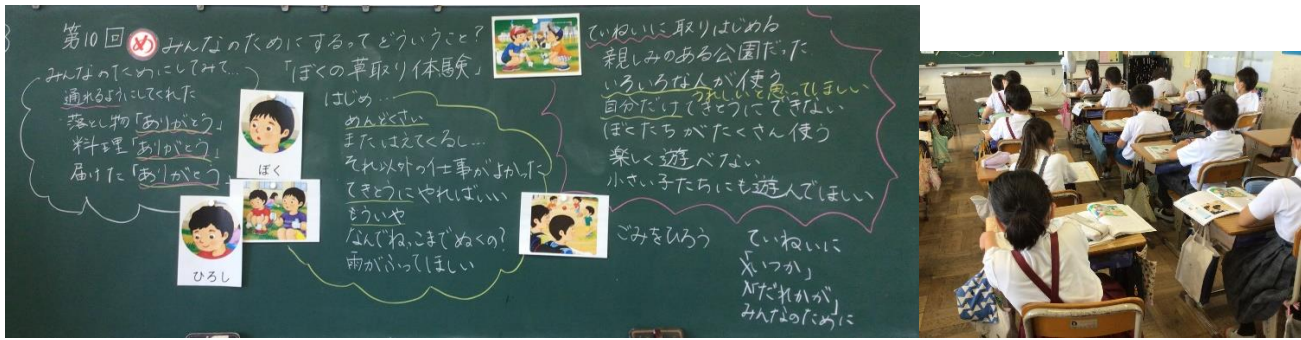 第10回 め みんなのためにするってどういうこと?
「ぼくの草取り体験」
みんなのためにしてみて…
通れるようにしてくれた
落とし物「ありがとう」
料理「ありがとう」
届けた「ありがとう」
ぼく
ひろし
はじめ…
めんどくさい
またはえてくるし…
それ以外の仕事がよかった
てきとうにやればいい
もういや
「なんでねっこまでぬくの?
雨がふってほしい
ていねいに取りはじめる
親しみのある公園だった
いろいろな人が使う
うれしいと思ってほしい
自分だけてきとうにできない
ぼくたちがたくさん使う
楽しく遊べない
小さい子たちにも遊んでほしい
ごみをひろう
ていねいに
「いつか」
「だれかが」
みんなのために